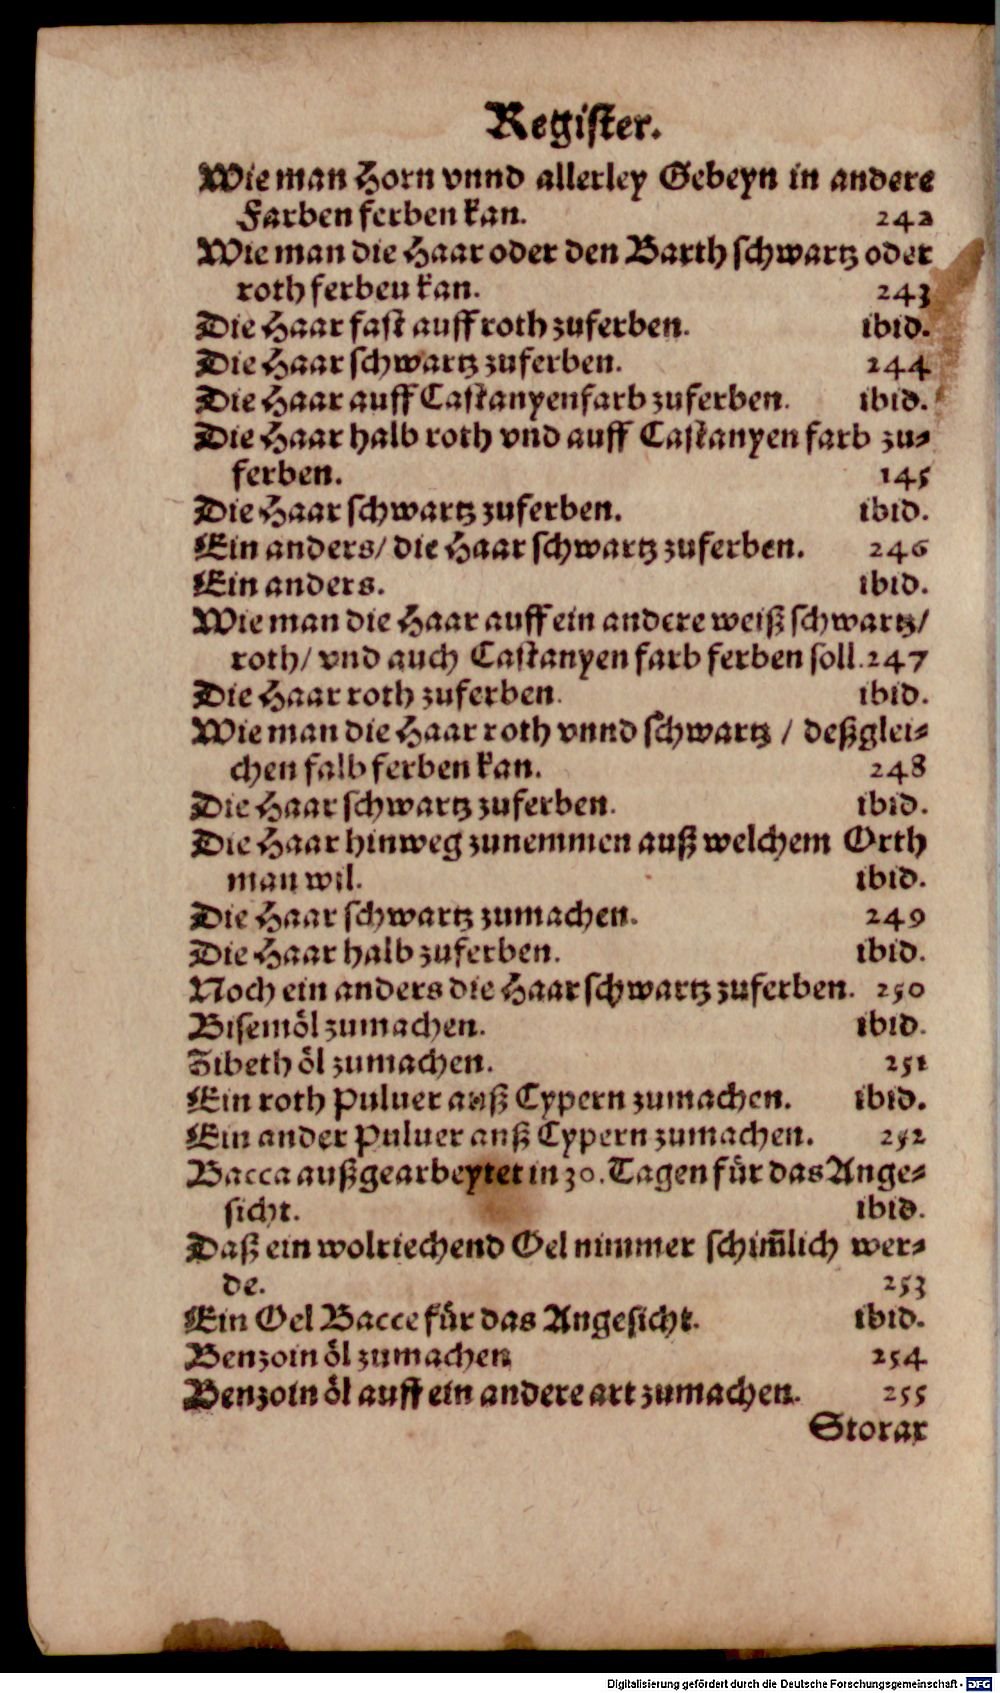 Register.
Wie man Horn vnnd allerley Gebeyn in andere
Farben ferben kan. 242
Wie man die Haar oder den Barth schwartz oder
roth ferben kan. 243
Die Haar fast auff roth zuferben. ibid.
Die Haar schwartz zuferben. 244
Die Haar auff Castanyenfarb zuferben. ibid.
Die Haar halb roth vnd auff Castanyen farb zu-
ferben. 145
Die Haar schwartz zuferben. ibid.
Ein anders/ die Haar schwartz zuferben. 246
Ein anders. ibid.
Wie man die Haar auff ein andere weiß schwartz/
roth/ vnd auch Castanyen farb ferben soll. 247
Die Haar roth zuferben. ibid.
Wie man die Haar roth vnnd schwartz / deßglei-
chen falb ferben kan. 248
Die Haar schwartz zuferben. ibid.
Die Haar hinweg zunemmen auß welchem Orth
man wil. ibid.
Die Haar schwartz zumachen. 249
Die Haar halb zuferben. ibid.
Noch ein anders die Haar schwartz zuferben. 250
Bisemöl zumachen. ibid.
Zibeth öl zumachen. 251
Ein roth Puluer auß Cypern zumachen. ibid.
Ein ander Puluer anß Cypern zumachen. 252
Bacca außgearbeytet in 30. Tagen für das Ange-
sicht. ibid.
Daß ein wolriechend Oel nimmer schim̃lich wer-
de. 253
Ein Oel Bacce für das Angesicht. ibid.
Benzoin öl zumachen 254
Benzoin öl auff ein andere art zumachen. 255
Storax
Digitalisierung gefördert durch die Deutsche Forschungsgemeinschaft - DFG